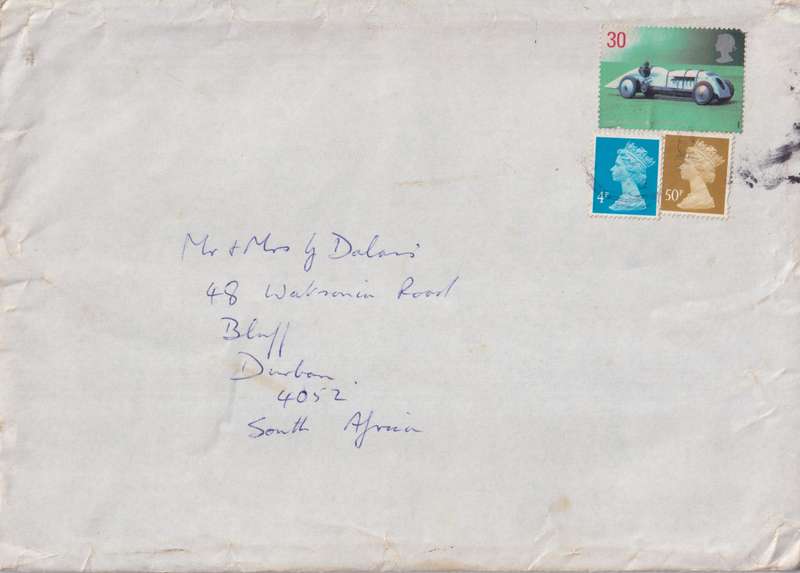 30
4P
50P
Mr & Mrs G
48 Watsonia Road
Bluff
Durban.
4052
South Africa